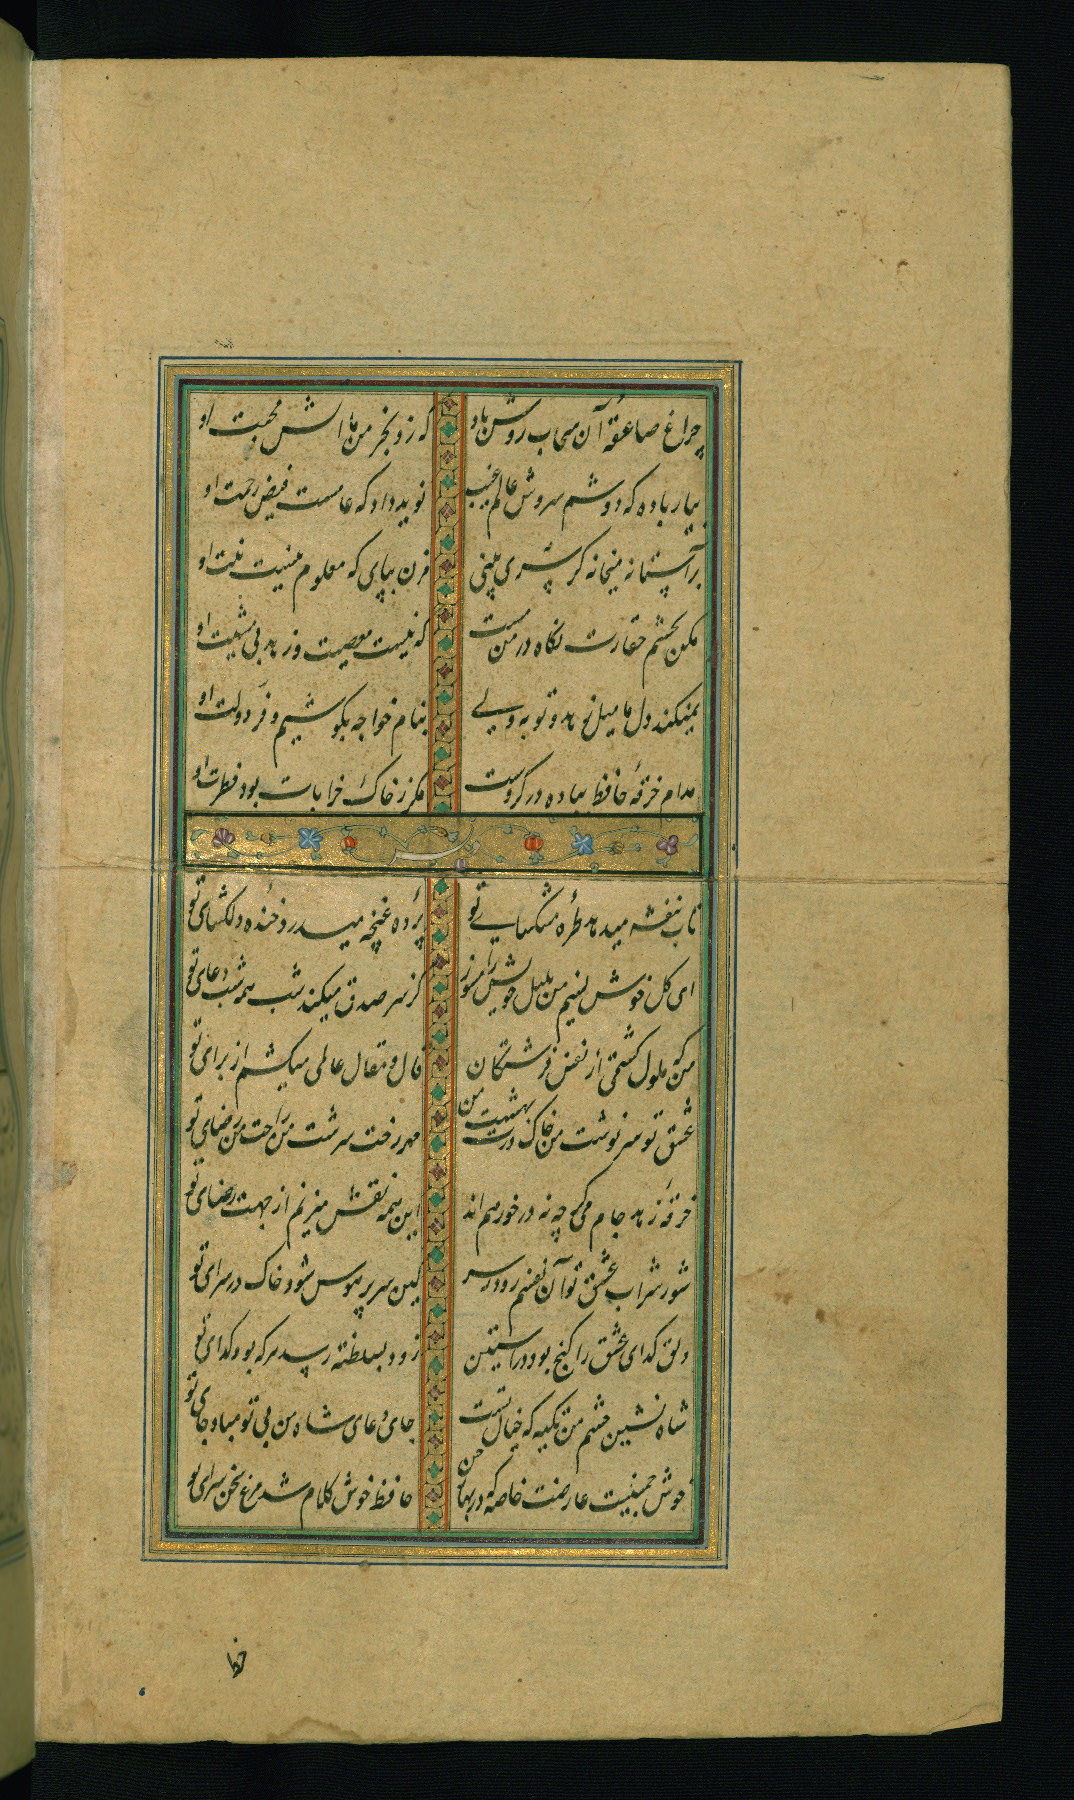 چراغ صاعقهٔ آن سحاب روشن باد
که زد بخرمن ما آتش محبت او
بیار باده که دوشم سروش عالم غیب
نوید داد که عامست فیض رحمت او
بر آستانه میخانه گر سری بینی
مزن بپای که معلوم نیست نیت او
مکن بچشم حقارت نگاه در من مست
که نیست معصیت و زهد بی مشیت او
نمیکند دل ما میل زهد و توبه ولی
بنام خواجه بکوشیم و فر دولت او
مدام خرقهٔ حافظ بباده در گروست
مگر ز خاک خرابات بود فطرت او
تاب بنفشه میدهد طره مشکسای تو
پرده غنچه میدرد خنده دلگشای تو
ای گل خوش نسیم من بلبل خویش را مسوز
کز سر صدق میکند شب همه شب دعای تو
من که ملول گشتمی از نفس فرشتگان
قال و مقال عالمی میکشم از برای تو
عشق تو سرنوشت من خاک درت بهشت من
مهر رخت سرشت من راحت من رضای تو
خرقه زهد جام می گرچه نه در خور هم اند
این همه نقش میزنم از جهت رضای تو
شور شراب عشق تو آن نفسم رود ز سر
کین سر پر هوس شود خاک در سرای تو
دلق گدای عشق را گنج بود در آستین
زود بسلطنت رسد هر که بود گدای تو
شاه نشین چشم من تکیه گه خیال تست
جای دعای شاه من بی تو مباد جای تو
خوش چمنیست عارضت خاصه که در بهار حسن
حافظ خوش کلام شد مرغ سخن سرای تو